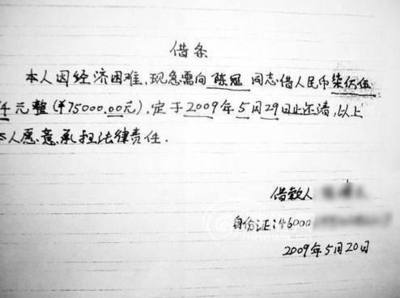 借条
本人因经济困难，现急需向 陈冠 同志借人民币柒仟伍
仟元整(¥75000.00元)，定于2009年5月29日止还清，以上
本人愿意承担法律责任.
借款人
身份证:46000
2009年5月20日